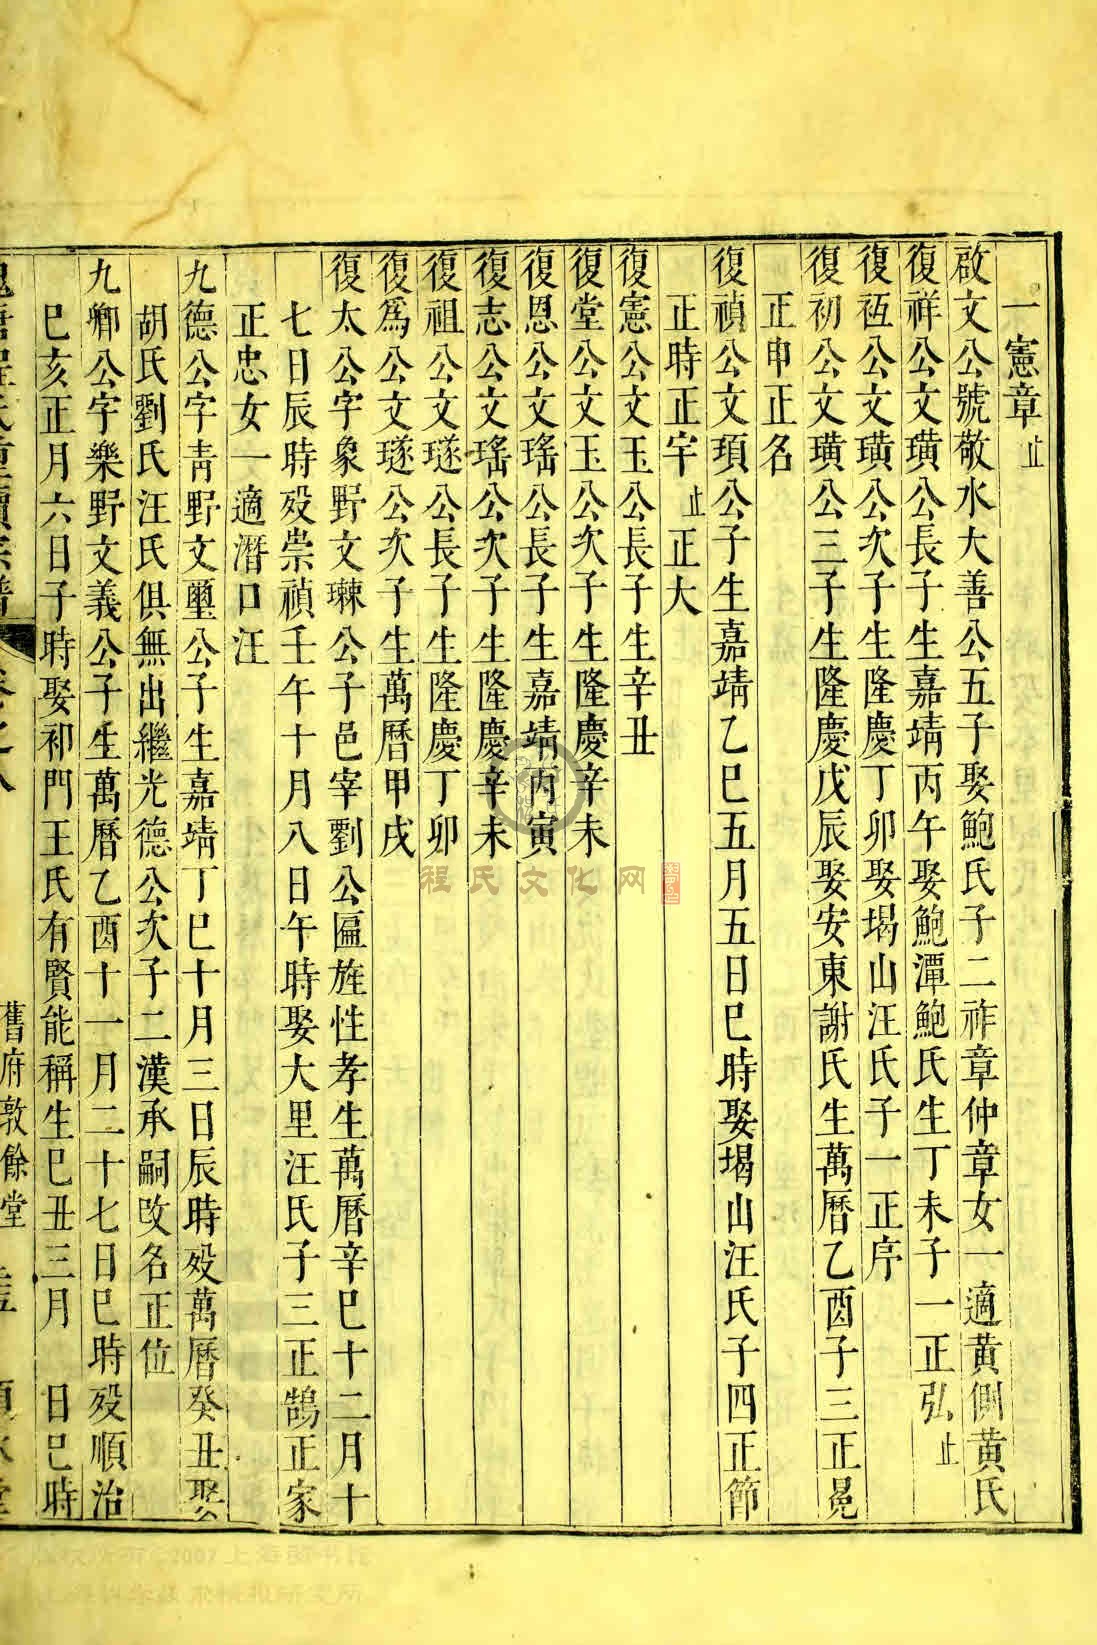 一憲章止
啟文公號敬水大善公五子娶鮑氏子二祚章仲章女一適黃側黃氏
復祥公文璜公長子生嘉靖丙午娶鮑潭鮑氏生丁未子一正弘止
復𥘵公文璜公次子生隆慶丁卯娶堨山汪氏子一正序
復初公文璜公三子生隆慶戊辰娶安東謝氏生萬曆乙酉子三正冕
正申正名
復禎公文項公子生嘉靖乙巳五月五日巳時娶堨山汪氏子四正節
正時正宇止正大
復憲公文玉公長子生辛丑
復堂公文玉公次子生隆慶辛未
復恩公文瑤公長子生嘉靖丙寅
復志公文瑤公次子生隆慶辛未
復祖公文璲公長子生隆慶丁卯
復爲公文璲公次子生萬曆甲戌
復太公字象野文㻋公子邑宰劉公匾旌性孝生萬曆辛巳十二月十
七日辰時歿崇禎壬午十月八日午時娶大里汪氏子三正鵠正家
正忠女一適潛口汪
九德公字青野文璽公子生嘉靖丁巳十月三日辰時歿萬曆癸丑娶
胡氏劉氏汪氏俱無出繼光德公次子二漢承嗣改名正位
九卿公字樂野文義公子生萬曆乙酉十一月二十七日巳時歿順治
己亥正月六日子時娶祁門王氏有賢能稱生己丑三月　日巳時
舊府敦餘堂
程氏文化网